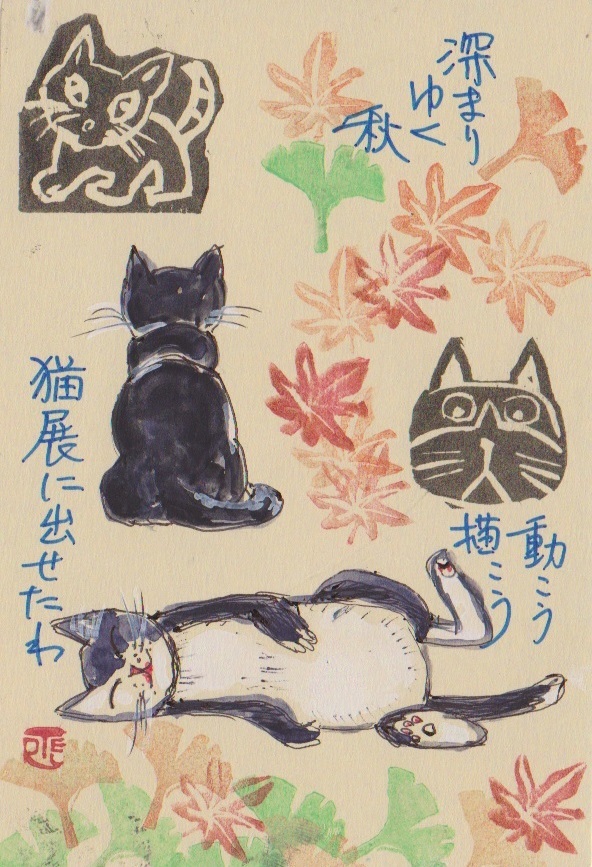 深まり
ゆく
秋
動こう
描こう
猫展に出せたわ